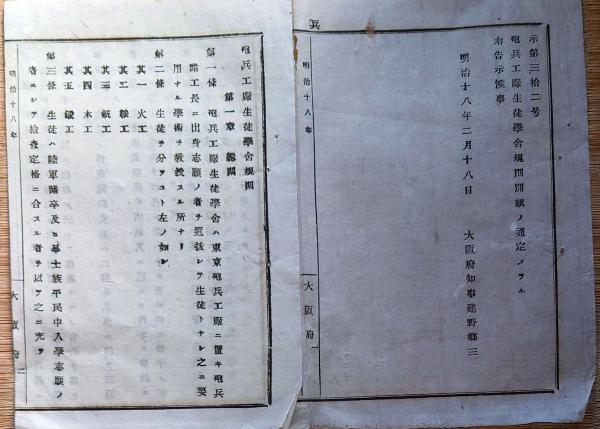 兵
示第三拾二号
砲兵工廠生徒學舍規則別紙ノ通定メラル
右告示候事
明治十八年二月十八日
大阪府知事建野郷三
明治十八年 大阪府 一
砲兵工廠生徒學舍規則
第一章 總則
第一條 砲兵工廠生徒學舍ハ東京砲兵工廠ニ置キ砲兵
諸工長ニ出身志願ノ者ヲ選拔シテ生徒トナシ之ニ要
用ナル學術ヲ教授スル所ナリ
第二條 生徒ヲ分ツコト左ノ如シ
其一 火工
其二 鞍工
其三 銃工
其四 木工
其五 鍛工
第三條 生徒ハ陸軍諸卒及ヒ華士族平民中入學志願ノ
者ニシテ檢査定格ニ合スル者ヲ以テ之ニ充ツ
明治十八年 大阪府 二